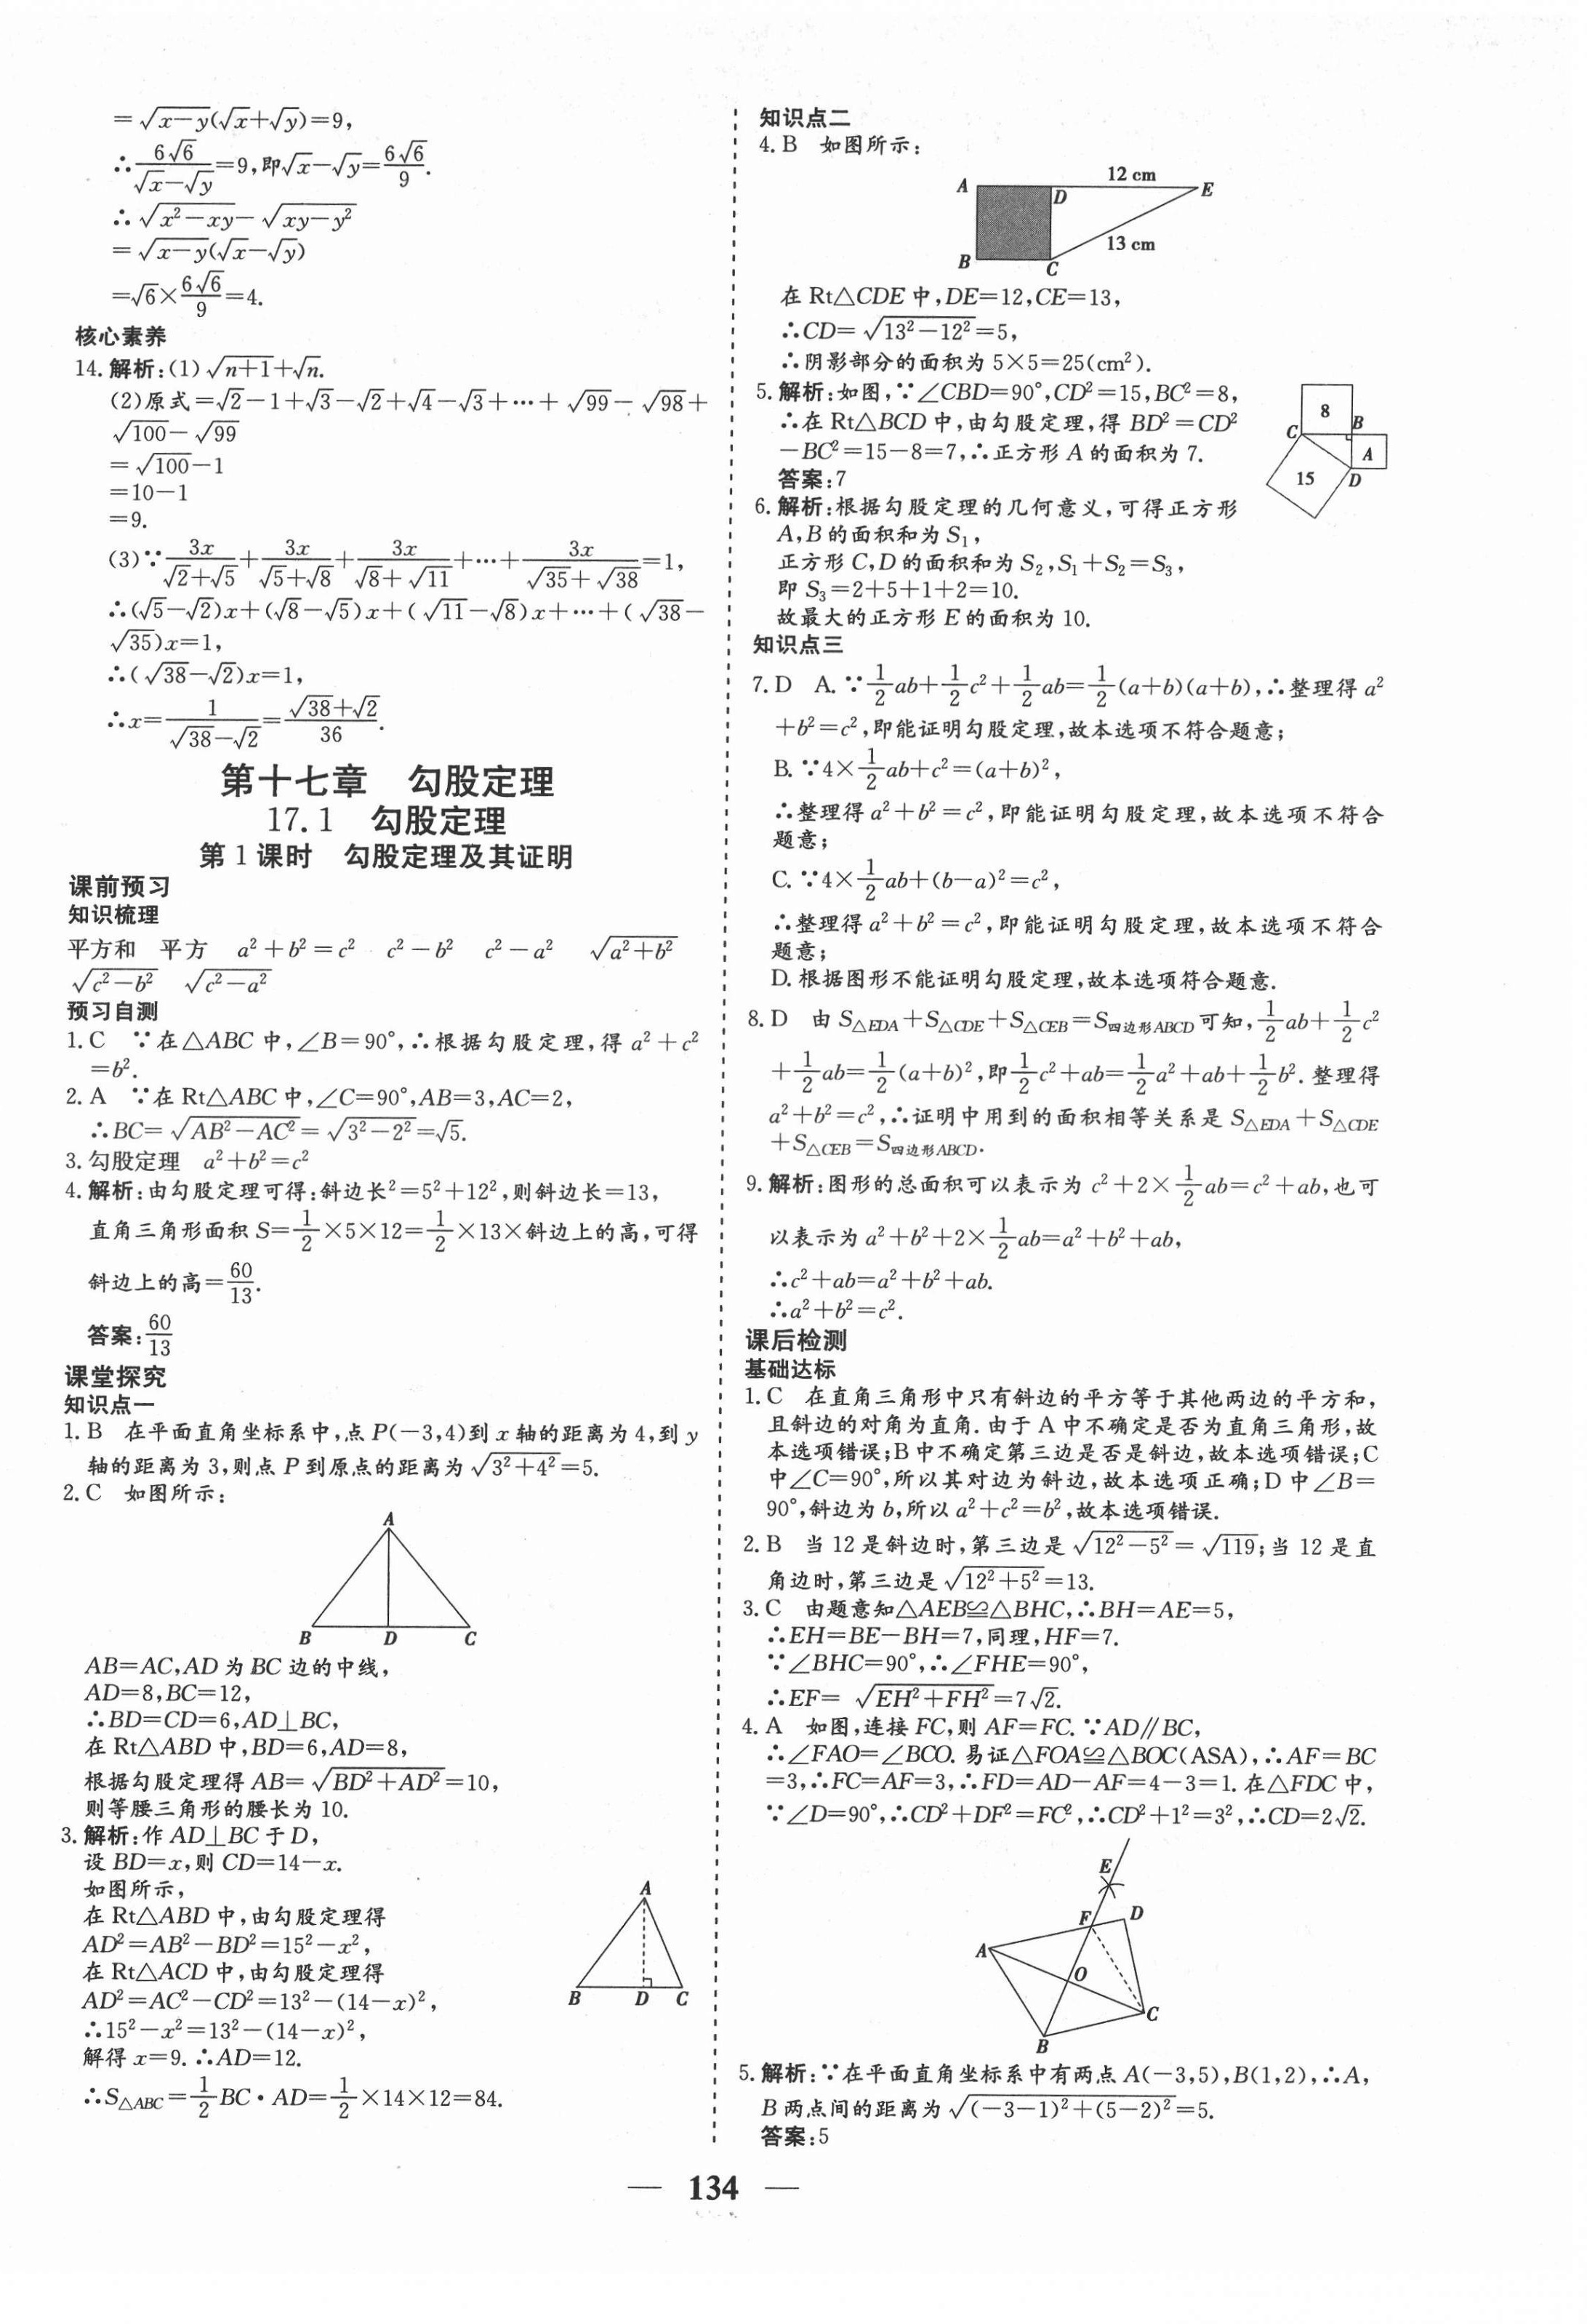 =√(x-y)(√x+√y)=9,
∴6√6/(√x-√y)=9,即√x-√y=6√6/9.
∴√(x²-xy)-√(xy-y²)
=√(x-y)(√x-√y)
=√6×6√6/9=4.
核心素养
14.解析:(1)√(n+1)+√n.
(2)原式=√2-1+√3-√2+√4-√3+…+√99-√98+
√100-√99
=√100-1
=10-1
=9.
(3)∵3x/(√2+√5)+3x/(√5+√8)+3x/(√8+√11)+…+3x/(√35+√38)=1,
∴(√5-√2)x+(√8-√5)x+(√11-√8)x+…+(√38-
√35)x=1,
∴(√38-√2)x=1,
∴x=1/(√38-√2)=(√38+√2)/36.
第十七章 勾股定理
17.1 勾股定理
第1课时 勾股定理及其证明
课前预习
知识梳理
平方和 平方 a²+b²=c² c²-b² c²-a² √(a²+b²)
√(c²-b²) √(c²-a²)
预习自测
1.C ∵在△ABC中,∠B=90°,∴根据勾股定理,得a²+c²
=b².
2.A ∵在Rt△ABC中,∠C=90°,AB=3,AC=2,
∴BC=√(AB²-AC²)=√(3²-2²)=√5.
3.勾股定理 a²+b²=c²
4.解析:由勾股定理可得:斜边长²=5²+12²,则斜边长=13,
直角三角形面积S=1/2×5×12=1/2×13×斜边上的高,可得
斜边上的高=60/13.
答案:60/13
课堂探究
知识点一
1.B 在平面直角坐标系中,点P(-3,4)到x轴的距离为4,到y
轴的距离为3,则点P到原点的距离为√(3²+4²)=5.
2.C 如图所示:
A
B D C
AB=AC,AD为BC边的中线,
AD=8,BC=12,
∴BD=CD=6,AD⊥BC,
在Rt△ABD中,BD=6,AD=8,
根据勾股定理得AB=√(BD²+AD²)=10,
则等腰三角形的腰长为10.
3.解析:作AD⊥BC于D,
设BD=x,则CD=14-x.
如图所示,
在Rt△ABD中,由勾股定理得
AD²=AB²-BD²=15²-x²,
在Rt△ACD中,由勾股定理得
AD²=AC²-CD²=13²-(14-x)²,
∴15²-x²=13²-(14-x)²,
解得x=9.∴AD=12.
∴S△ABC=1/2BC·AD=1/2×14×12=84.
A
B D C
知识点二
4.B 如图所示:
12 cm
A D E
13 cm
B C
在Rt△CDE中,DE=12,CE=13,
∴CD=√(13²-12²)=5,
∴阴影部分的面积为5×5=25(cm²).
5.解析:如图,∵∠CBD=90°,CD²=15,BC²=8,
∴在Rt△BCD中,由勾股定理,得BD²=CD²
-BC²=15-8=7,∴正方形A的面积为7.
答案:7
8
C B
A
15 D
6.解析:根据勾股定理的几何意义,可得正方形
A,B的面积和为S₁,
正方形C,D的面积和为S₂,S₁+S₂=S₃,
即S₃=2+5+1+2=10.
故最大的正方形E的面积为10.
知识点三
7.D A.∵1/2ab+1/2c²+1/2ab=1/2(a+b)(a+b),∴整理得a²
+b²=c²,即能证明勾股定理,故本选项不符合题意;
B.∵4×1/2ab+c²=(a+b)²,
∴整理得a²+b²=c²,即能证明勾股定理,故本选项不符合
题意;
C.∵4×1/2ab+(b-a)²=c²,
∴整理得a²+b²=c²,即能证明勾股定理,故本选项不符合
题意;
D.根据图形不能证明勾股定理,故本选项符合题意.
8.D 由S△EDA+S△CDE+S△CEB=S四边形ABCD可知,1/2ab+1/2c²
+1/2ab=1/2(a+b)²,即1/2c²+ab=1/2a²+ab+1/2b².整理得
a²+b²=c²,∴证明中用到的面积相等关系是S△EDA+S△CDE
+S△CEB=S四边形ABCD.
9.解析:图形的总面积可以表示为c²+2×1/2ab=c²+ab,也可
以表示为a²+b²+2×1/2ab=a²+b²+ab,
∴c²+ab=a²+b²+ab.
∴a²+b²=c².
课后检测
基础达标
1.C 在直角三角形中只有斜边的平方等于其他两边的平方和,
且斜边的对角为直角.由于A中不确定是否为直角三角形,故
本选项错误;B中不确定第三边是否是斜边,故本选项错误;C
中∠C=90°,所以其对边为斜边,故本选项正确;D中∠B=
90°,斜边为b,所以a²+c²=b²,故本选项错误.
2.B 当12是斜边时,第三边是√(12²-5²)=√119;当12是直
角边时,第三边是√(12²+5²)=13.
3.C 由题意知△AEB≌△BHC,∴BH=AE=5,
∴EH=BE-BH=7,同理,HF=7.
∵∠BHC=90°,∴∠FHE=90°,
∴EF=√(EH²+FH²)=7√2.
4.A 如图,连接FC,则AF=FC.∵AD∥BC,
∴∠FAO=∠BCO.易证△FOA≌△BOC(ASA),∴AF=BC
=3,∴FC=AF=3,∴FD=AD-AF=4-3=1.在△FDC中,
∵∠D=90°,∴CD²+DF²=FC²,∴CD²+1²=3²,∴CD=2√2.
E
F D
A
O
C
B
5.解析:∵在平面直角坐标系中有两点A(-3,5),B(1,2),∴A,
B两点间的距离为√((-3-1)²+(5-2)²)=5.
答案:5
— 134 —